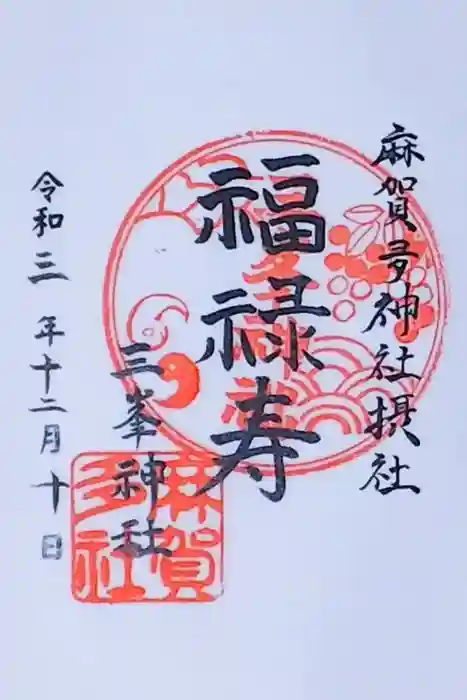 麻賀多神社摂社
福禄寿
三峯神社
麻賀多社
令和三年十二月十日